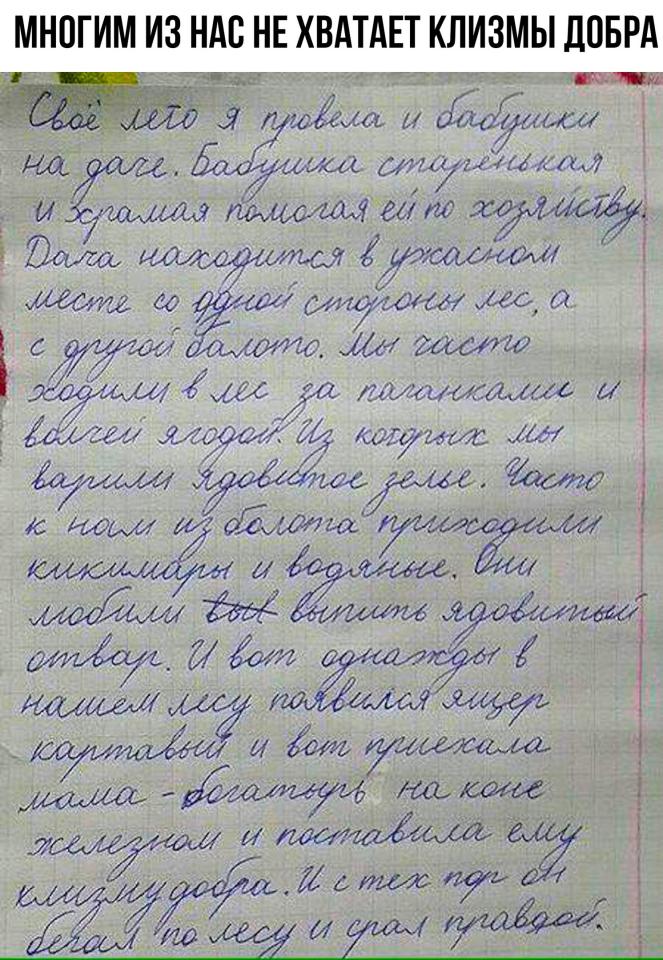 МНОГИМ ИЗ НАС НЕ ХВАТАЕТ КЛИЗМЫ ДОБРА
Своё лето я провела и бабушки
на даче. Бабушка старенькая
и храмая памагая ей по хозяйству.
Дача находится в ужасном
месте со одной стороны лес, а
с другой балото. Мы часто
ходили в лес за паганками и
волчей ягодой. Из которых мы
варили ядовитое зелье. Часто
к нам из болота приходили
кикимары и водяные. Они
любили выпить ядовитый
отвар. И вот однажды в
нашем лесу появился ящер
картавый и вот приехала
мама - богатырь на коне
железном и поставила ему
клизму добра. И с тех пор он
бегал по лесу и срал правдой.